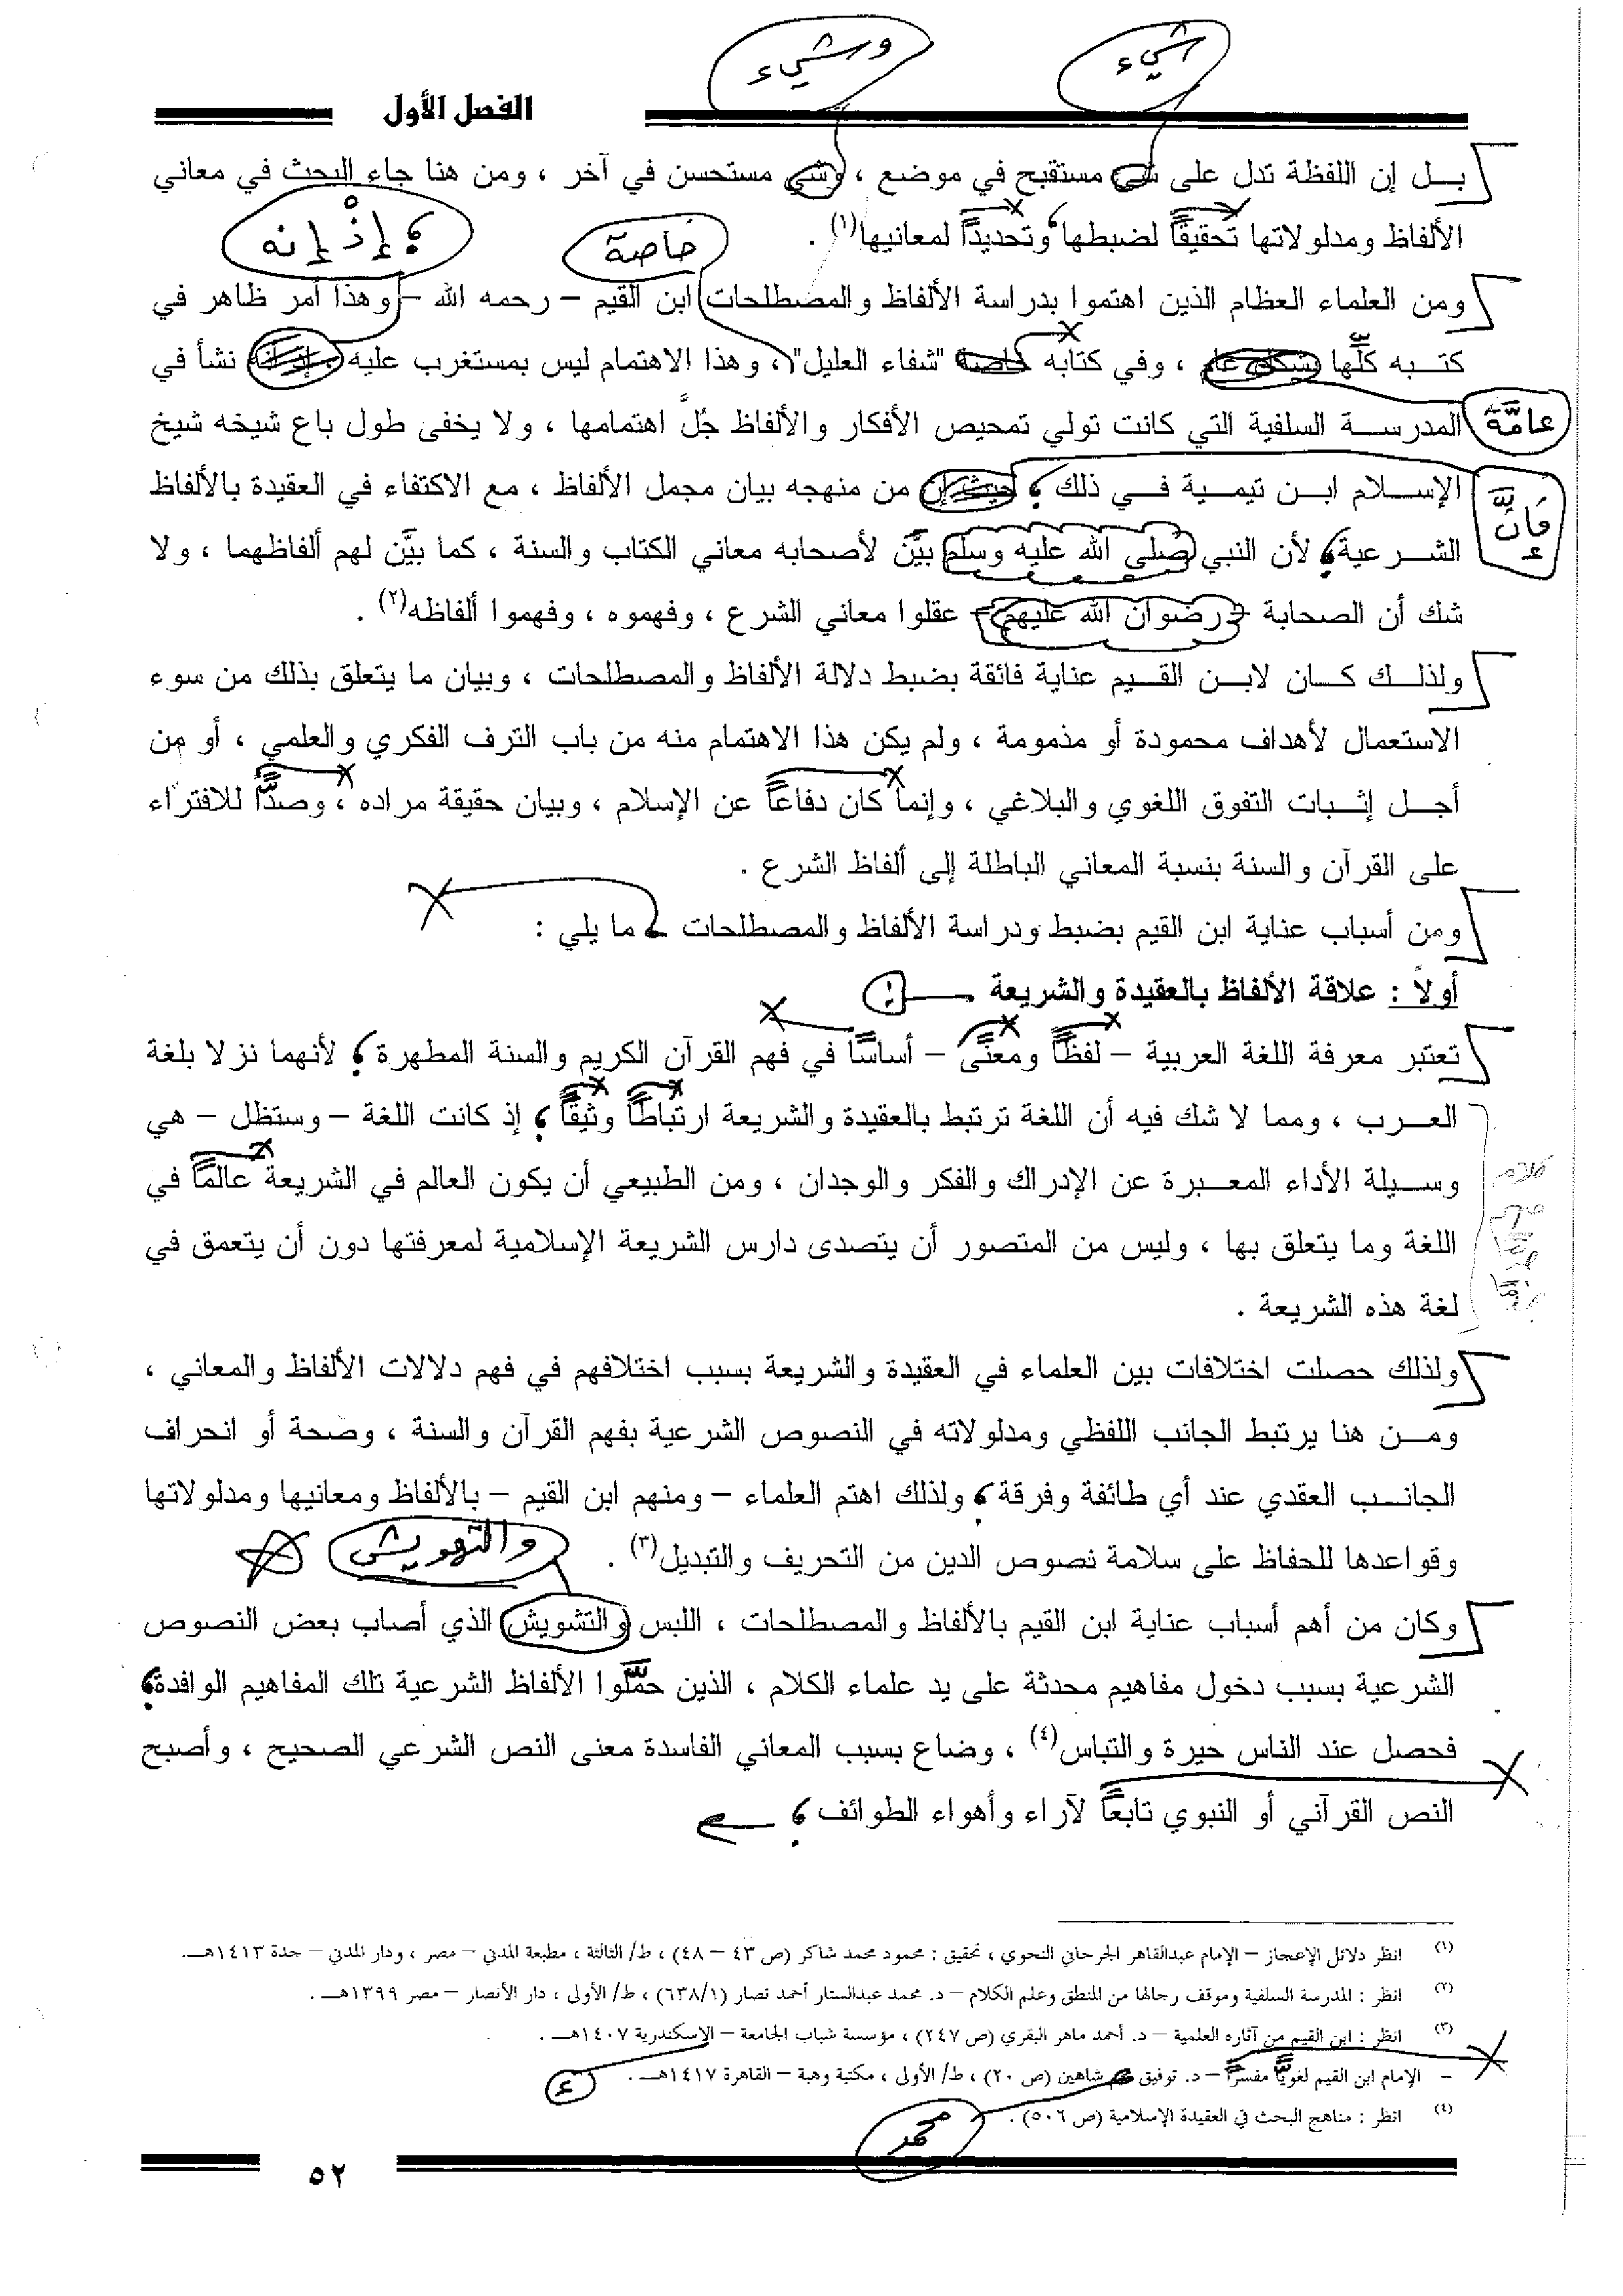 وشيء
شيء
الفصل الأول
بل إن اللفظة تدل على شي مستقبح في موضع ، وشي مستحسن في آخر ، ومن هنا جاء البحث في معاني
الألفاظ ومدلولاتها تحقيقاً لضبطها وتحديداً لمعانيها(١) .
خاصة
؛ إذْ إنه
ومن العلماء العظام الذين اهتموا بدراسة الألفاظ والمصطلحات ابن القيم – رحمه الله – وهذا أمر ظاهر في
كتبه كلِّها بشكل عام ، وفي كتابه خاصة "شفاء العليل" ، وهذا الاهتمام ليس بمستغرب عليه ، إذ إنه نشأ في
عامَّة
المدرسة السلفية التي كانت تولي تمحيص الأفكار والألفاظ جُلَّ اهتمامها ، ولا يخفى طول باع شيخه شيخ
الإسلام ابن تيمية في ذلك ؛ حيث إن من منهجه بيان مجمل الألفاظ ، مع الاكتفاء في العقيدة بالألفاظ
فإنَّ
الشرعية ؛ لأن النبي صلى الله عليه وسلم بيَّن لأصحابه معاني الكتاب والسنة ، كما بيَّن لهم ألفاظهما ، ولا
شك أن الصحابة – رضوان الله عليهم – عقلوا معاني الشرع ، وفهموه ، وفهموا ألفاظه(٢) .
ولذلك كان لابن القيم عناية فائقة بضبط دلالة الألفاظ والمصطلحات ، وبيان ما يتعلق بذلك من سوء
الاستعمال لأهداف محمودة أو مذمومة ، ولم يكن هذا الاهتمام منه من باب الترف الفكري والعلمي ، أو من
أجل إثبات التفوق اللغوي والبلاغي ، وإنما كان دفاعاً عن الإسلام ، وبيان حقيقة مراده ، وصدًّا للافتراء
على القرآن والسنة بنسبة المعاني الباطلة إلى ألفاظ الشرع .
ومن أسباب عناية ابن القيم بضبط ودراسة الألفاظ والمصطلحات ما يلي :
أولاً : علاقة الألفاظ بالعقيدة والشريعة :
تعتبر معرفة اللغة العربية – لفظاً ومعنًى – أساسًا في فهم القرآن الكريم والسنة المطهرة ؛ لأنهما نزلا بلغة
العرب ، ومما لا شك فيه أن اللغة ترتبط بالعقيدة والشريعة ارتباطاً وثيقاً ؛ إذ كانت اللغة – وستظل – هي
وسيلة الأداء المعبرة عن الإدراك والفكر والوجدان ، ومن الطبيعي أن يكون العالم في الشريعة عالماً في
اللغة وما يتعلق بها ، وليس من المتصور أن يتصدى دارس الشريعة الإسلامية لمعرفتها دون أن يتعمق في
لغة هذه الشريعة .
ولذلك حصلت اختلافات بين العلماء في العقيدة والشريعة بسبب اختلافهم في فهم دلالات الألفاظ والمعاني ،
ومن هنا يرتبط الجانب اللفظي ومدلولاته في النصوص الشرعية بفهم القرآن والسنة ، وصحة أو انحراف
الجانب العقدي عند أي طائفة وفرقة ؛ ولذلك اهتم العلماء – ومنهم ابن القيم – بالألفاظ ومعانيها ومدلولاتها
وقواعدها للحفاظ على سلامة نصوص الدين من التحريف والتبديل(٣) .
والتهويش
وكان من أهم أسباب عناية ابن القيم بالألفاظ والمصطلحات ، اللبس والتشويش الذي أصاب بعض النصوص
الشرعية بسبب دخول مفاهيم محدثة على يد علماء الكلام ، الذين حمَّلوا الألفاظ الشرعية تلك المفاهيم الوافدة ؛
فحصل عند الناس حيرة والتباس(٤) ، وضاع بسبب المعاني الفاسدة معنى النص الشرعي الصحيح ، وأصبح
النص القرآني أو النبوي تابعاً لآراء وأهواء الطوائف ؛
(١) انظر دلائل الإعجاز – الإمام عبدالقاهر الجرجاني النحوي ، تحقيق : محمود محمد شاكر (ص ٤٣ – ٤٨) ، ط/ الثالثة ، مطبعة المدني – مصر ، ودار المدني – جدة ١٤١٣هـ.
(٢) انظر : المدرسة السلفية وموقف رجالها من المنطق وعلم الكلام – د. محمد عبدالستار أحمد نصار (٦٣٨/١) ، ط/ الأولى ، دار الأنصار – مصر ١٣٩٩هـ .
(٣) انظر : ابن القيم من آثاره العلمية – د. أحمد ماهر البقري (ص ٢٤٧) ، مؤسسة شباب الجامعة – الإسكندرية ١٤٠٧هـ .
– الإمام ابن القيم لغويًّا مفسراً – د. توفيق شاهين (ص ٢٠) ، ط/ الأولى ، مكتبة وهبة – القاهرة ١٤١٧هـ .
(٤) انظر : مناهج البحث في العقيدة الإسلامية (ص ٥٠٦) .
محمد
٥٢